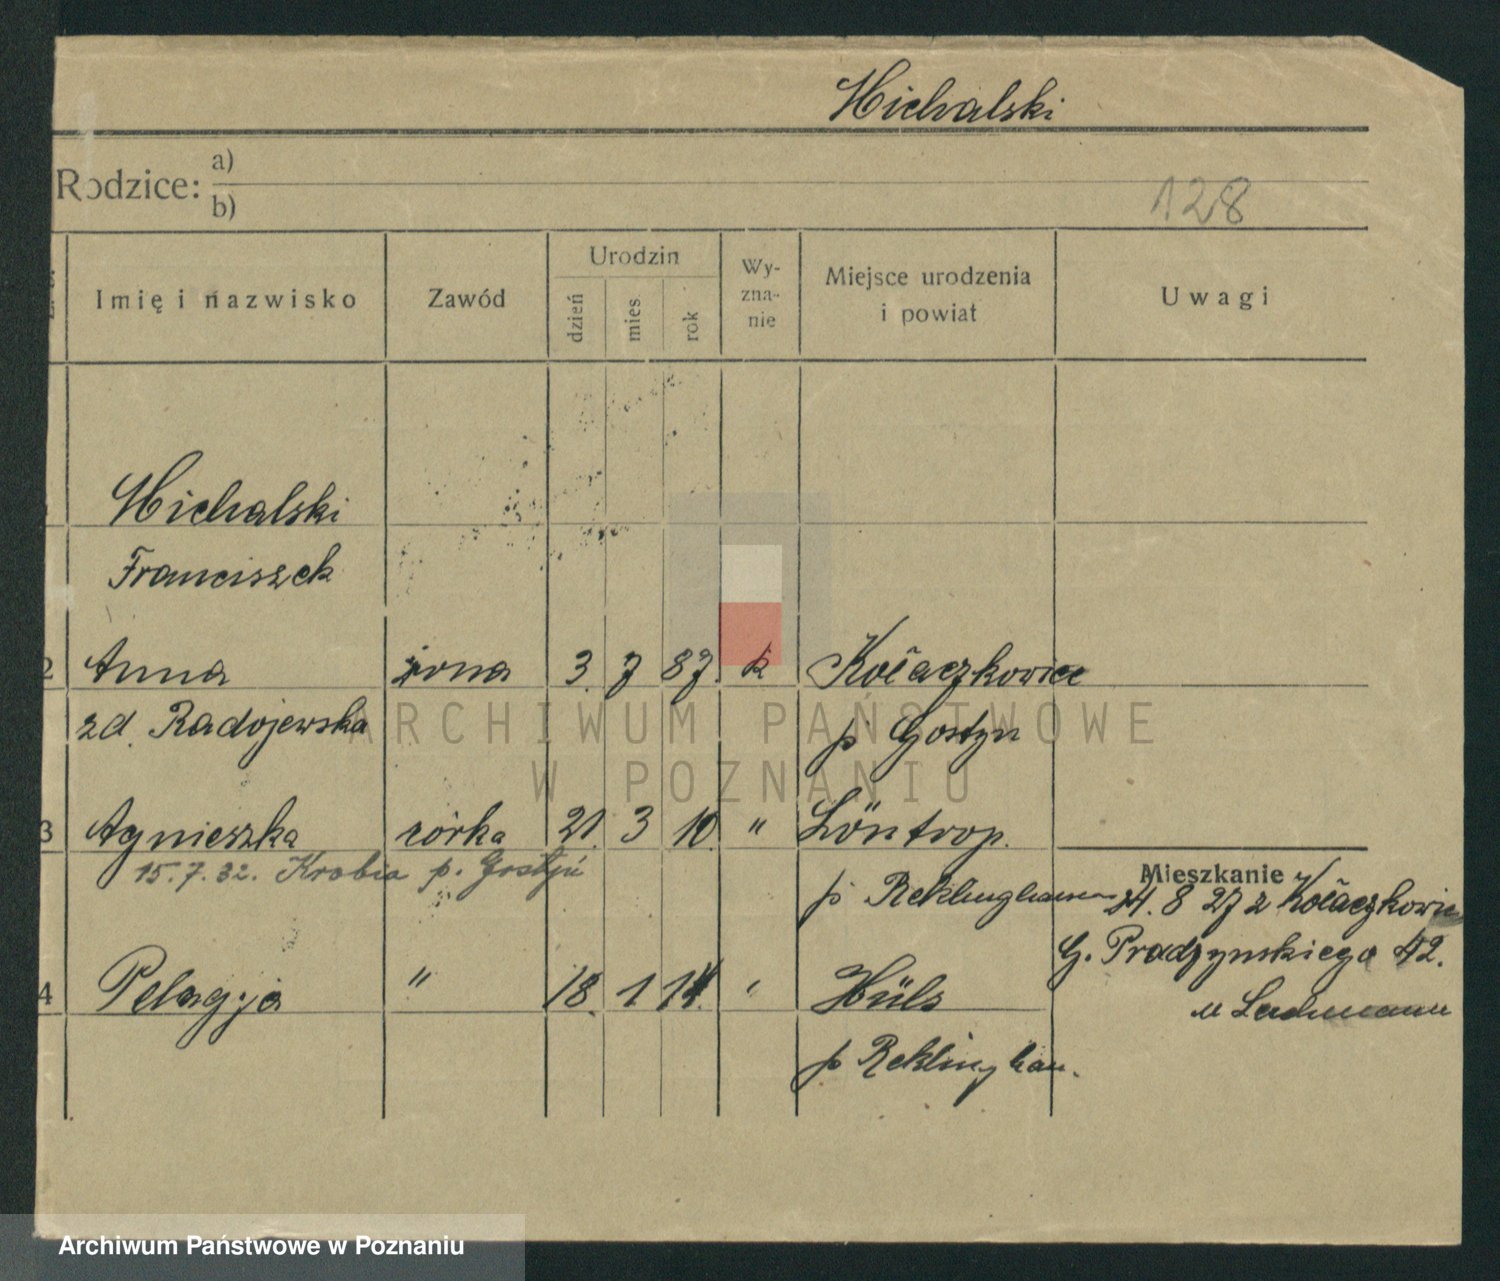 Michalski
Rodzice: a)
b)
128
Imię i nazwisko Zawód Urodzin dzień mies rok Wy-zna-nie Miejsce urodzenia i powiat Uwagi
Michalski
Franciszek
2 Anna żona 3. 7 87. k Kołaczkowice
zd. Radojewska p Gostyn
3 Agnieszka córka 21. 3 10. " Löntrop.
15.7.32. Krobia p. Gostyń
p Reklinghausen
Mieszkanie
24. 8 27 z Kołaczkowic
G. Prądzynskiego 42.
u Lachmann
4 Pelagja " 18. 1 14. " Hüls
p Reklinghau.
ARCHIWUM PAŃSTWOWE
W POZNANIU
Archiwum Państwowe w Poznaniu